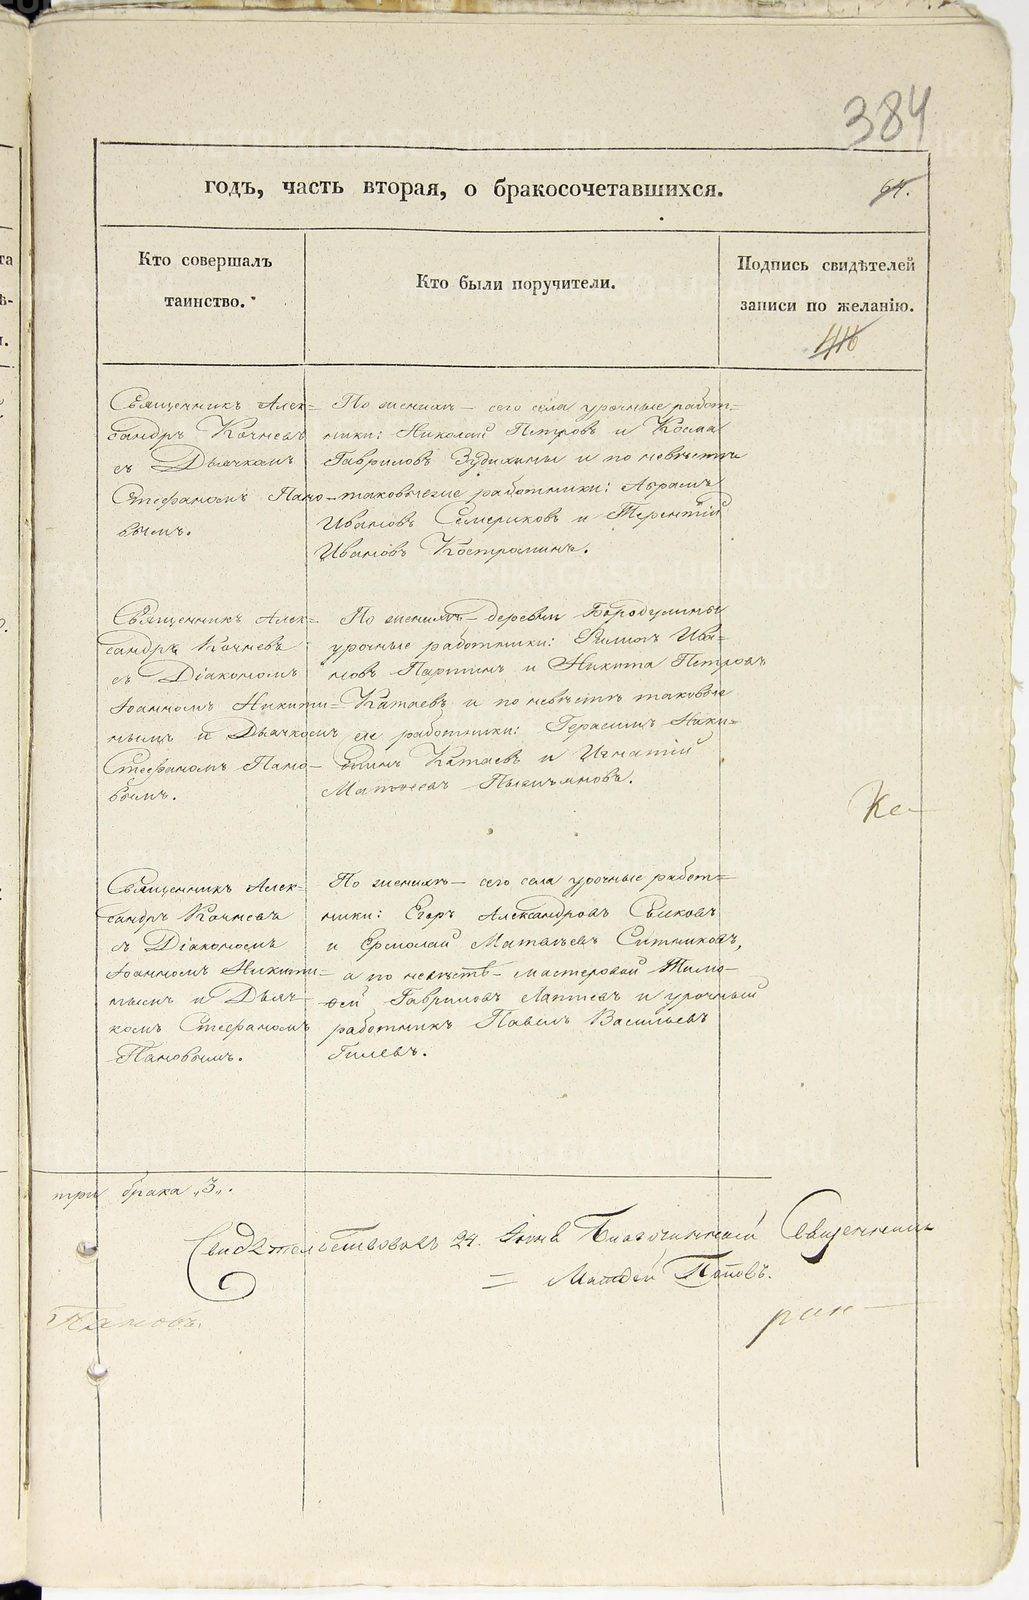 384
годъ, часть вторая, о бракосочетавшихся.
64.
Кто совершалъ
таинство.
Кто были поручители.
Подпись свидѣтелей
записи по желанію.
Священникъ Алек=
сандръ Кочневъ
съ Дьячкомъ
Стефаномъ Пано-
вымъ.
По женихѣ – сего села урочные работ=
ники: Николай Петровъ и Косма
Гавриловъ Зудихины и по невѣстѣ
таковыеже работники: Абрамъ
Ивановъ Семериковъ и Терентій
Ивановъ Костроминъ.
Священникъ Алек=
сандръ Кочневъ
съ Діакономъ
Іоанномъ Никити=
нымъ и Дьячкомъ
Стефаномъ Пано-
вымъ.
По женихѣ – деревни Бородулины
урочные работники: Филипъ Ива=
новъ Партинъ и Никита Петровъ
Катаевъ и по невѣстѣ таковые
же работники: Герасимъ Ники=
тинъ Катаевъ и Игнатій
Матвеевъ
Священникъ Алек-
сандръ Кочневъ
съ Діакономъ
Іоанномъ Никити=
нымъ и Дьяч-
комъ Стефаномъ
Пановымъ.
По женихѣ – сего села урочные работ=
ники: Егоръ Александровъ Сысковъ
и Ермолай Матвѣевъ Ситниковъ,
а по невѣстѣ – мастеровой Тимо-
фей Гавриловъ Лаптевъ и урочный
работникъ Павелъ Васильевъ
Гилевъ.
Ке–
три брака „3„.
Свидѣтельствовалъ 24. Іюня Благочинный Священникъ
= Матфей Поповъ.
Пановъ.